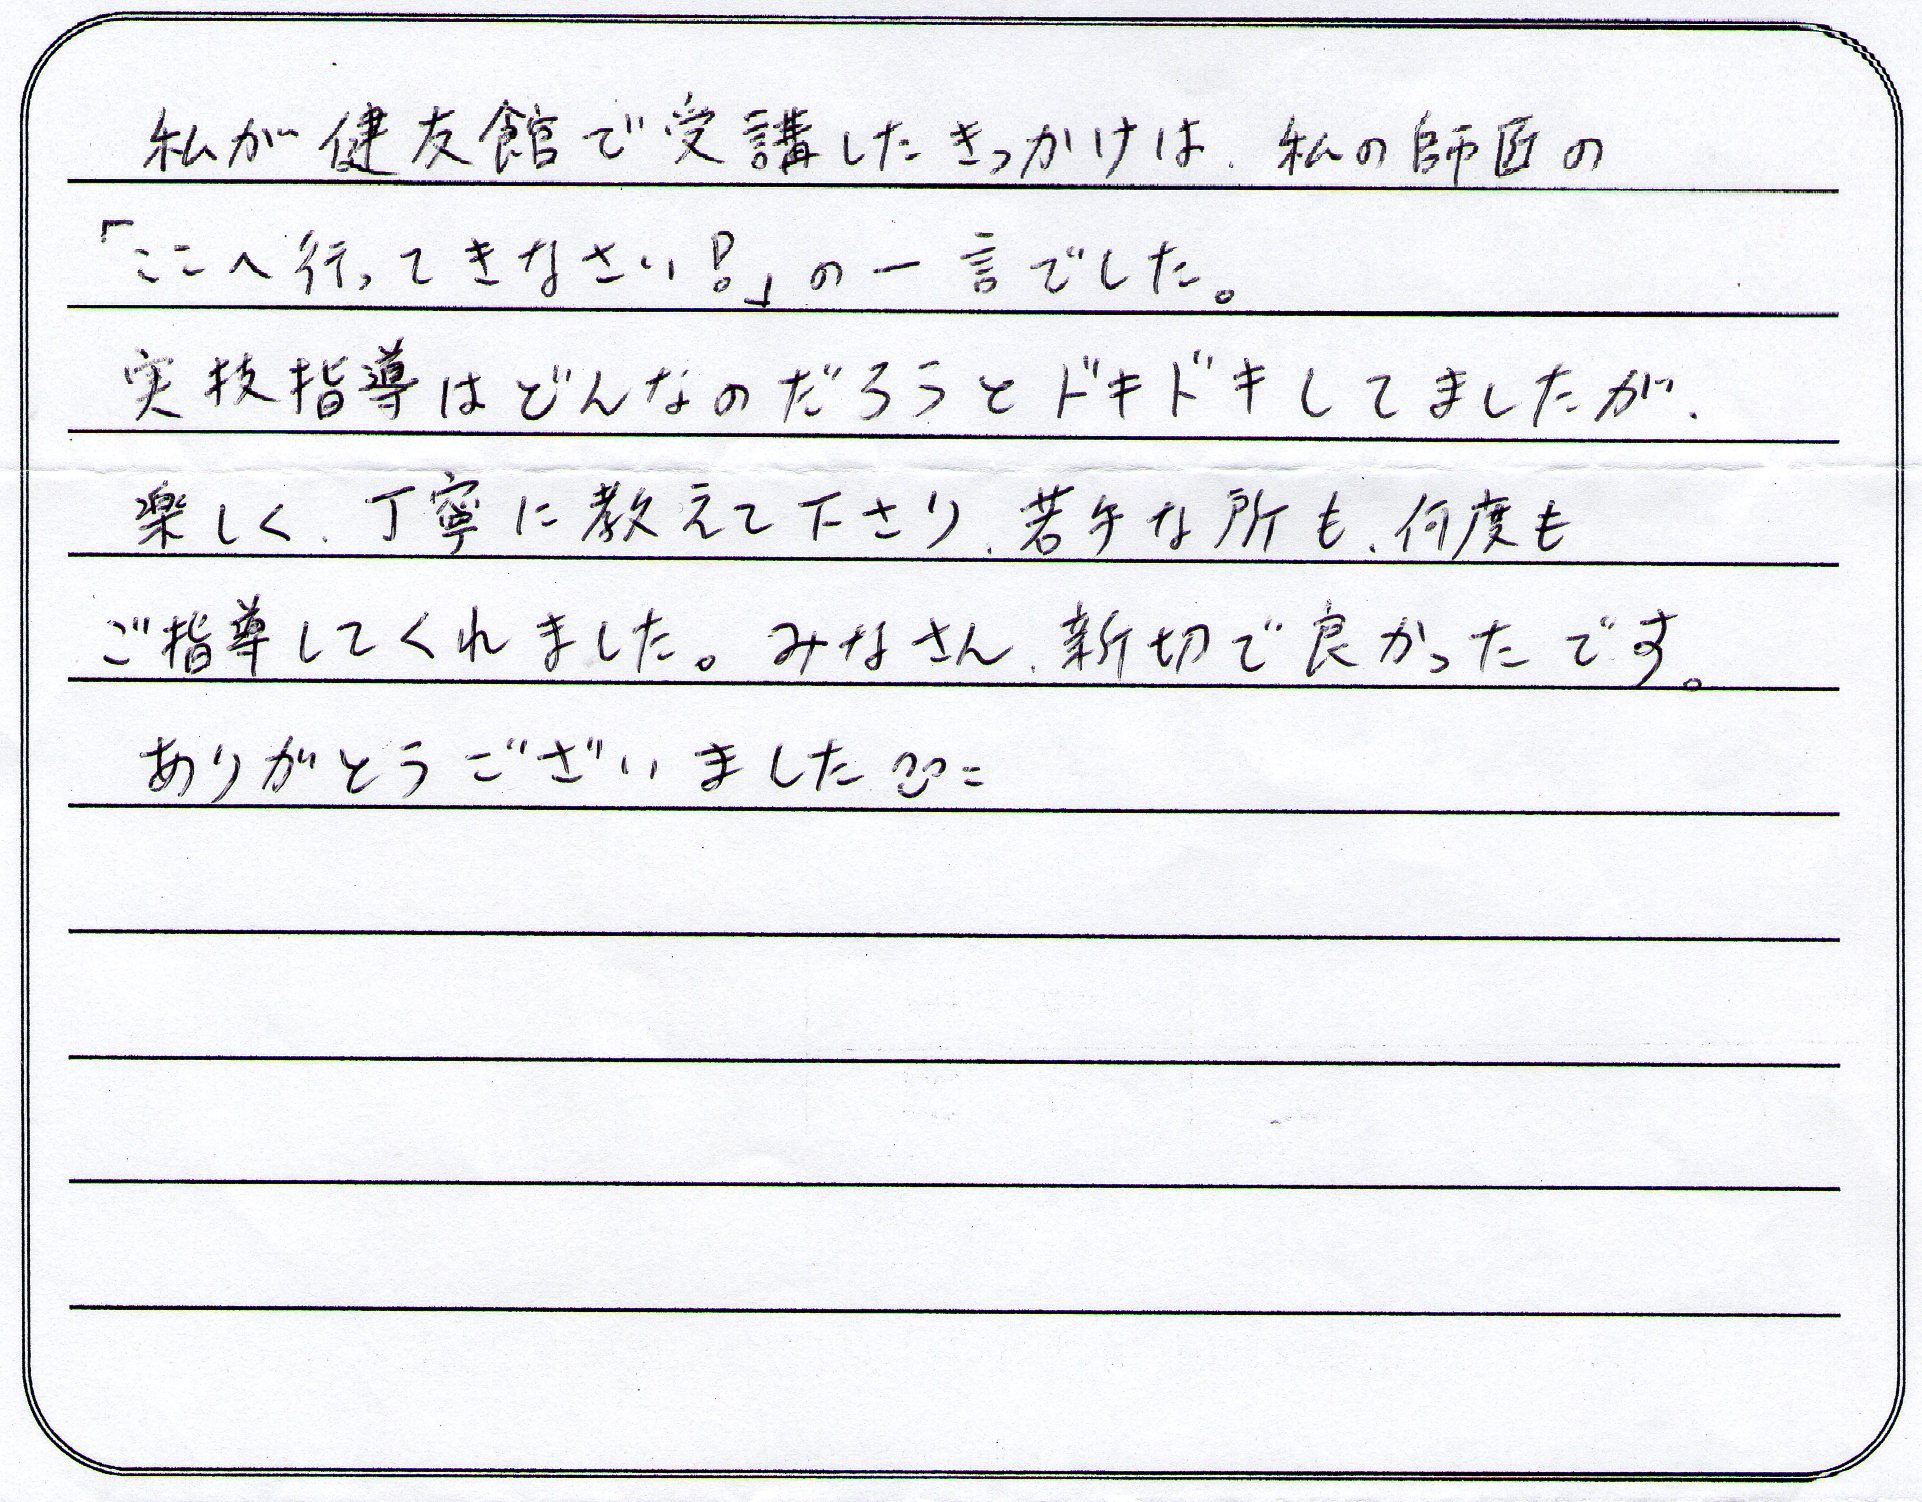 私が健友館で受講したきっかけは、私の師匠の
「ここへ行ってきなさい!」の一言でした。
実技指導はどんなのだろうとドキドキしてましたが、
楽しく、丁寧に教えて下さり、苦手な所も、何度も
ご指導してくれました。みなさん、新切で良かったです。
ありがとうございました